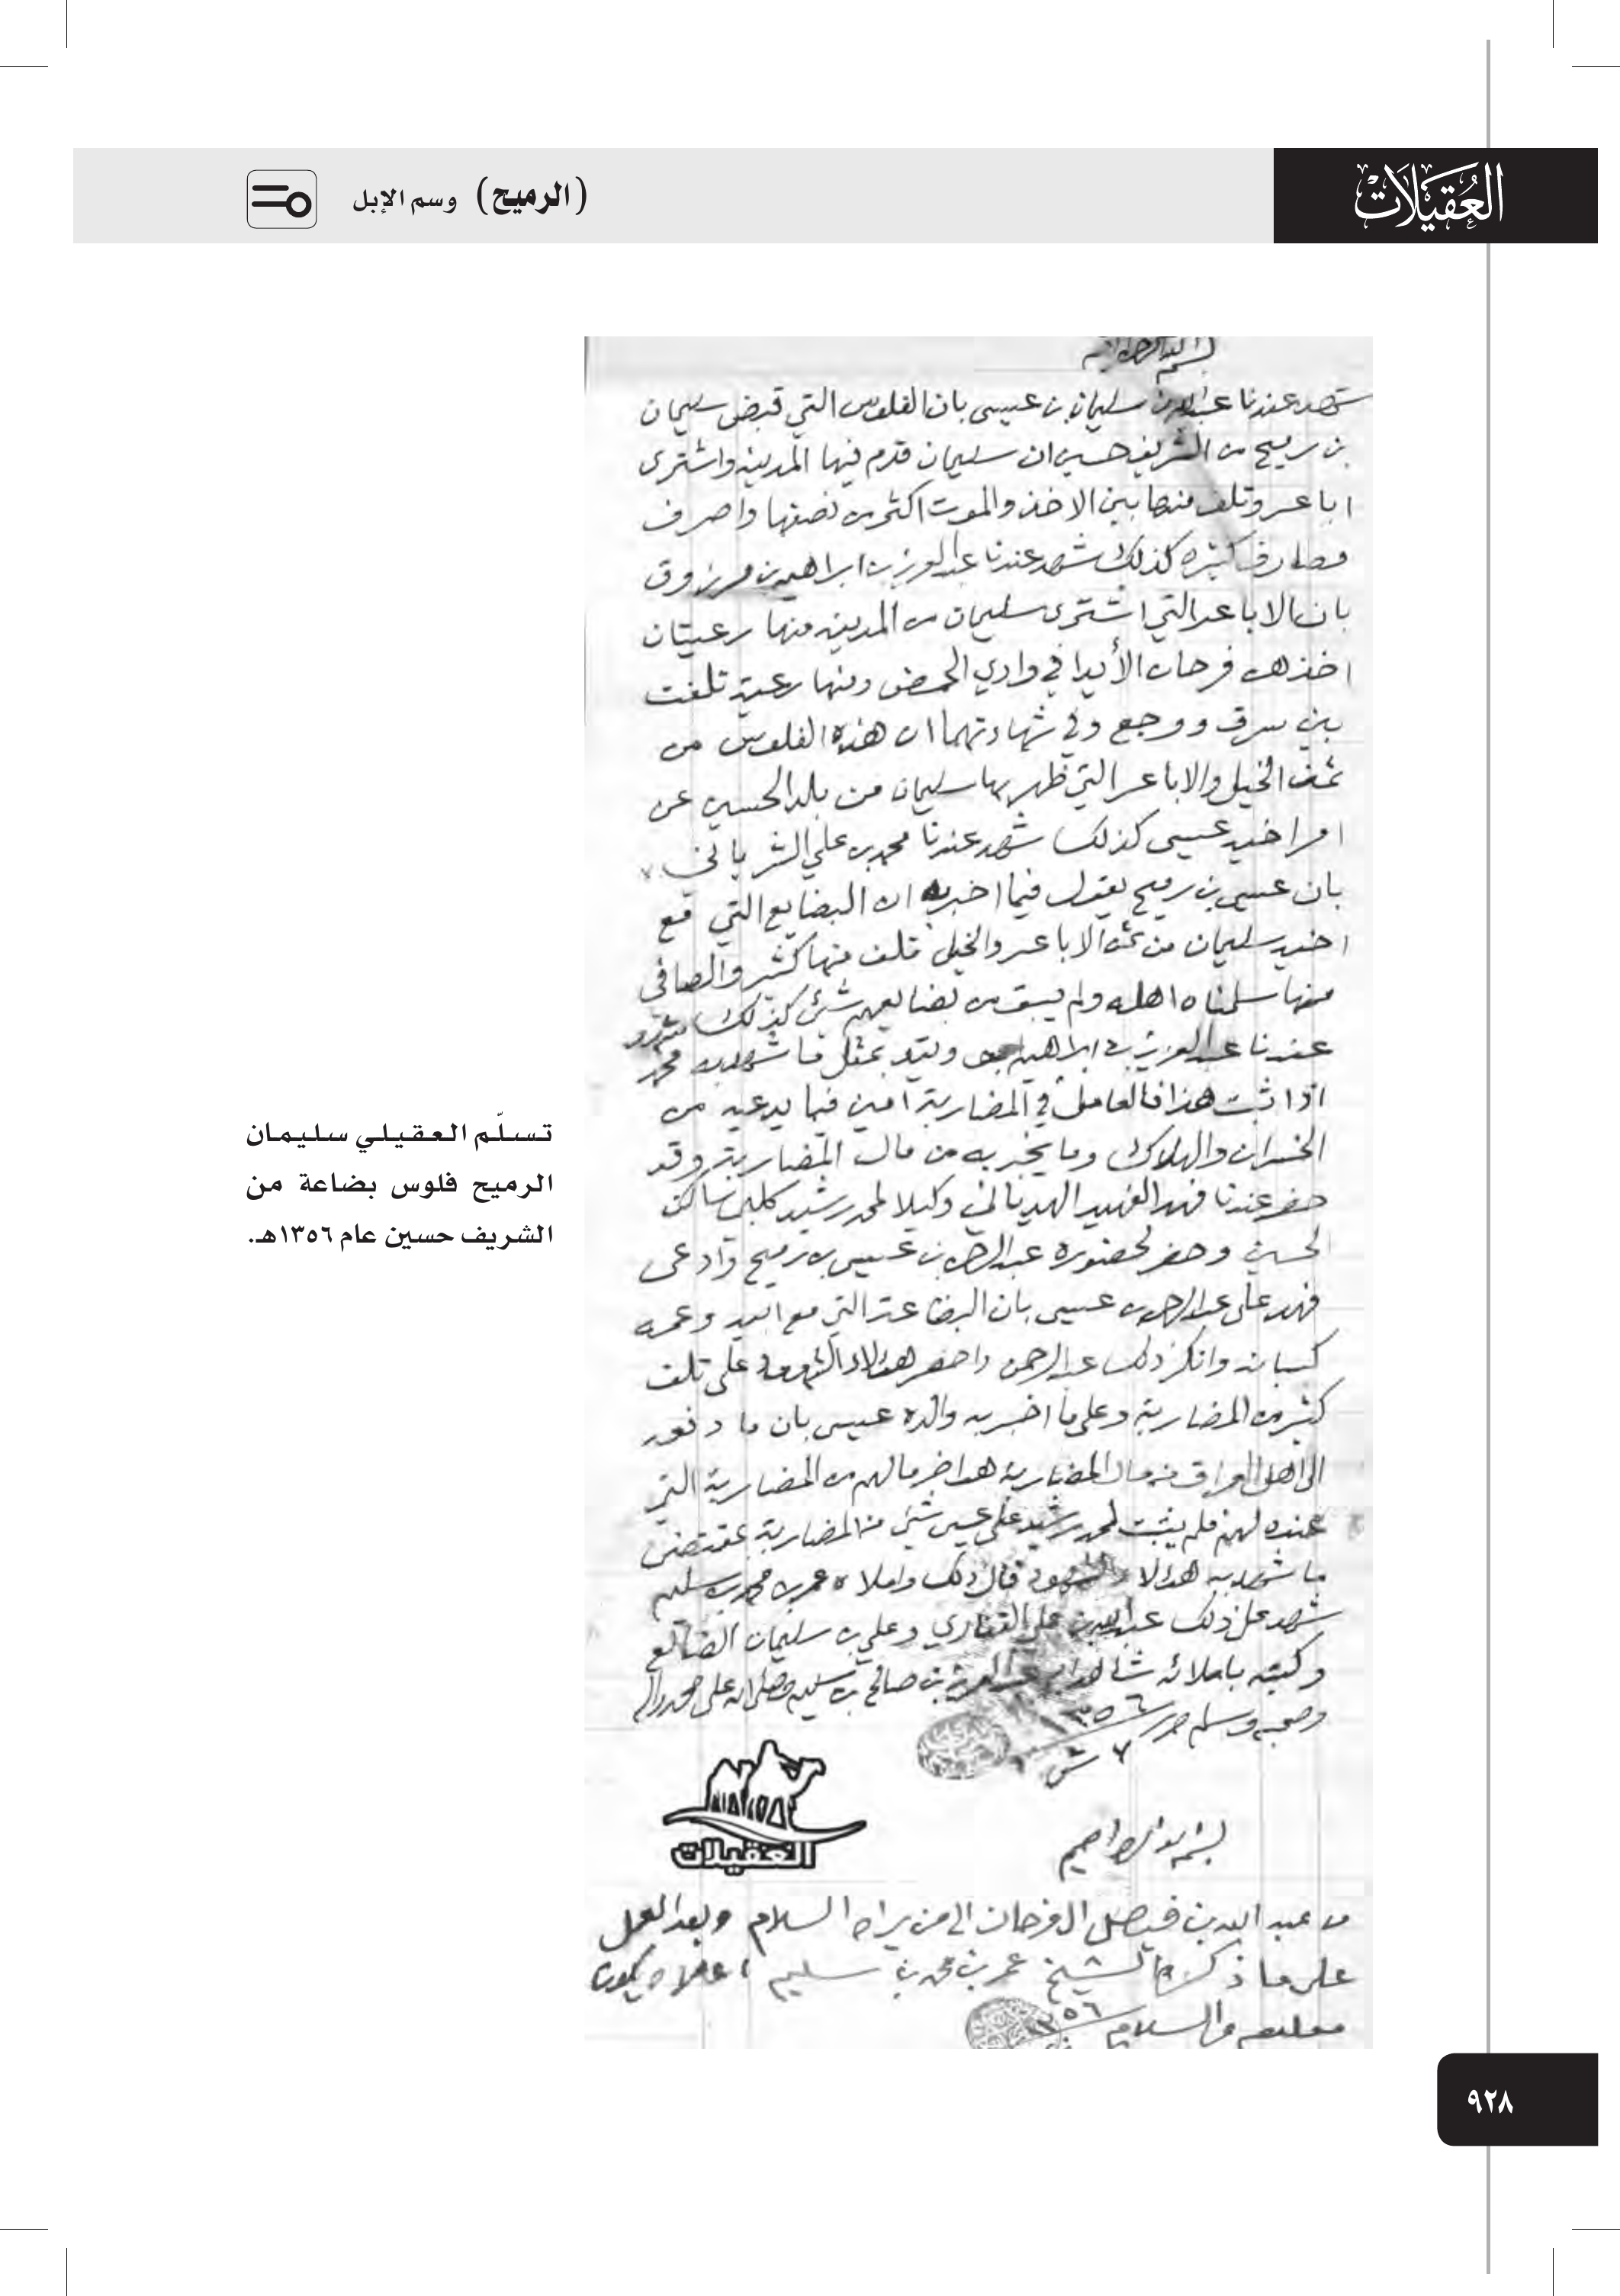 العُقيلات
(الرميح) وسم الإبل
شهد عندنا سليمان بن عيسى بان الفلوس التي قبض سليمان
بن رميح من الشريف حسين ان سليمان قدم فيها المدينه واشترى
اباعر وتلف منها بين الاخذ والموت اكثر من نصفها واصرف
مصارف كثيره كذلك شهد عندنا عبدالعزيز بن ابراهيم بن مرزوق
بان الاباعر التي اشترى سليمان من المدينه منها رعيتان
اخذهن فرحان الأيدا في وادي الحمض ومنها رعية تلفت
بين سرق ووجع وفي شهادتهما ان هذه الفلوس من
ثمن الخيل والاباعر التي ظهر بها سليمان من بلد الحسين عن
امر اخيه عيسى كذلك شهد عندنا محمد بن علي
بان عيسى بن رميح يقول فيما اخبر به ان البضايع التي مع
اخيه سليمان من ثمن الاباعر والخيل تلف منها كثير والصافي
منها سلمناه اهله ولم يبق من بضايعهم شئ كذلك شهد
عندنا عبدالعزيز بن ابراهيم بمثل ما شهد به محمد
اذا ثبت هذا فالعامل في المضاربة امين فيما يدعيه من
الخسران والهلاك وما يخبر به من مال المضاربة وقد
حضر عندنا فهد وكيلا لمحمد رشيد ساكن
الحسين وحضر لحضوره عبدالرحمن بن عيسى بن رميح وادعى
فهد على عبدالرحمن بن عيسى بان البضاعة التي مع ابيه وعمه
وانكر ذلك عبدالرحمن واحضر هؤلاء الشهود على تلف
كثير من المضاربة وعلى ما اخبر به والده عيسى بان ما دفعه
الى اهل العراق من مال المضاربة هو اخر مالهم من المضاربة التي
عنده لهم فلم يثبت لمحمد رشيد على عيسى شئ من المضاربة بمقتضى
ما شهد به هؤلاء الشهود قال ذلك واملاه عمر بن محمد بن سليم
شهد على ذلك عبدالله بن علي وعلي بن سليمان الضالع
وكتبه باملائه شاهدا به عبدالعزيز بن صالح بن سليم وصلى الله على محمد واله
وصحبه وسلم حرر ١٣٥٦
٧ ش
العقيلات
بسم الله الرحمن الرحيم
من عبد الله بن فيصل ال فرحان الى من يراه السلام وبعد العمل
على ما ذكره الشيخ عمر بن محمد بن سليم اعلاه يكون
معلوم والسلام ١٣٥٦
تسلّم العقيلي سليمان
الرميح فلوس بضاعة من
الشريف حسين عام ١٣٥٦هـ.
٩٢٨